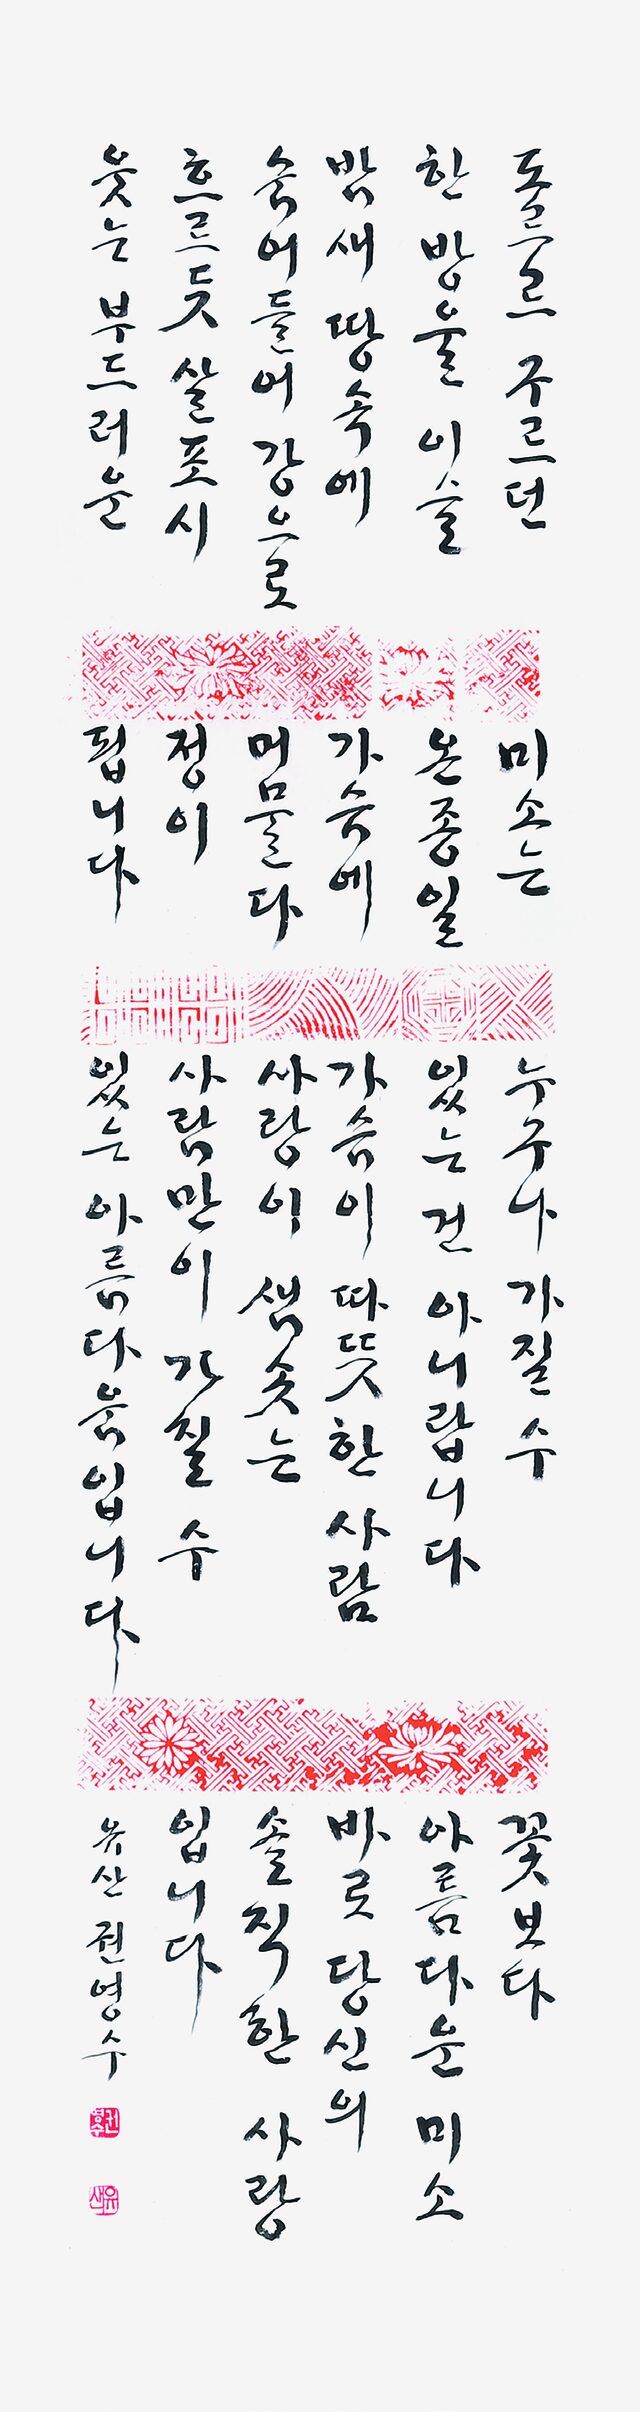 돌르르 구르던
한 방울 이슬
밤새 땅속에
숨어들어 강으로
흐르듯 살포시
웃는 부드러운
미소는
온종일
가슴에
머물다
정이
됩니다
누구나 가질 수
있는 건 아니랍니다
가슴이 따뜻한 사람
사랑이 샘솟는
사람만이 가질 수
있는 아름다움입니다
꽃보다
아름다운 미소
바로 당신의
솔직한 사랑
입니다
유산 권영수